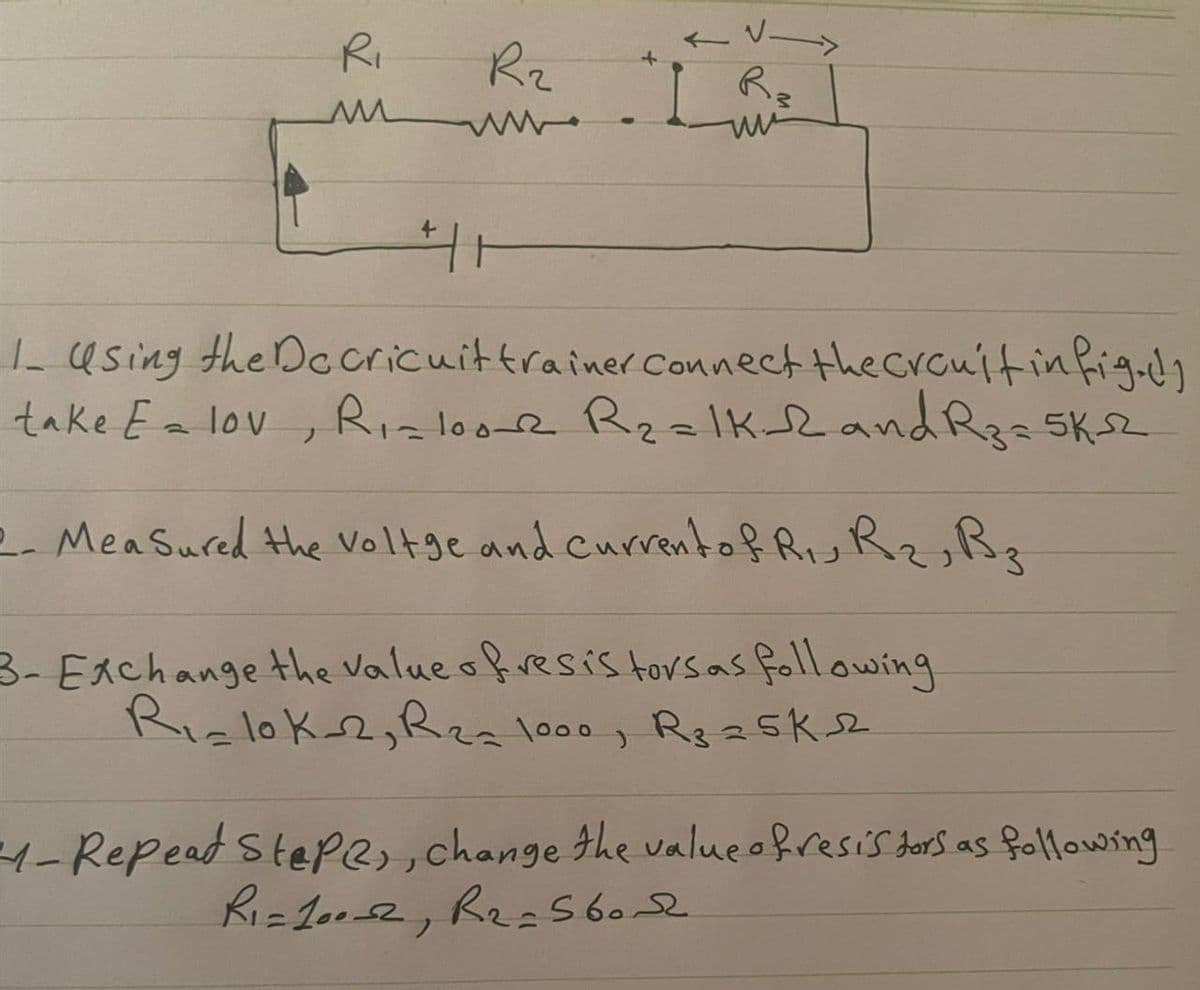 ← V →
R₁ R₂ + R₃
+
1- Using the Dc cricuit trainer connect the crcuit in fig.(1)
take E = 10v , R₁=100Ω R₂=1KΩ and R₃=5KΩ
2- Measured the voltge and current of R₁, R₂, R₃
3- Exchange the value of resistors as following
R₁=10KΩ, R₂=1000, R₃=5KΩ
4- Repeat Step(2), change the value of resistors as following
R₁=100Ω, R₂=560Ω